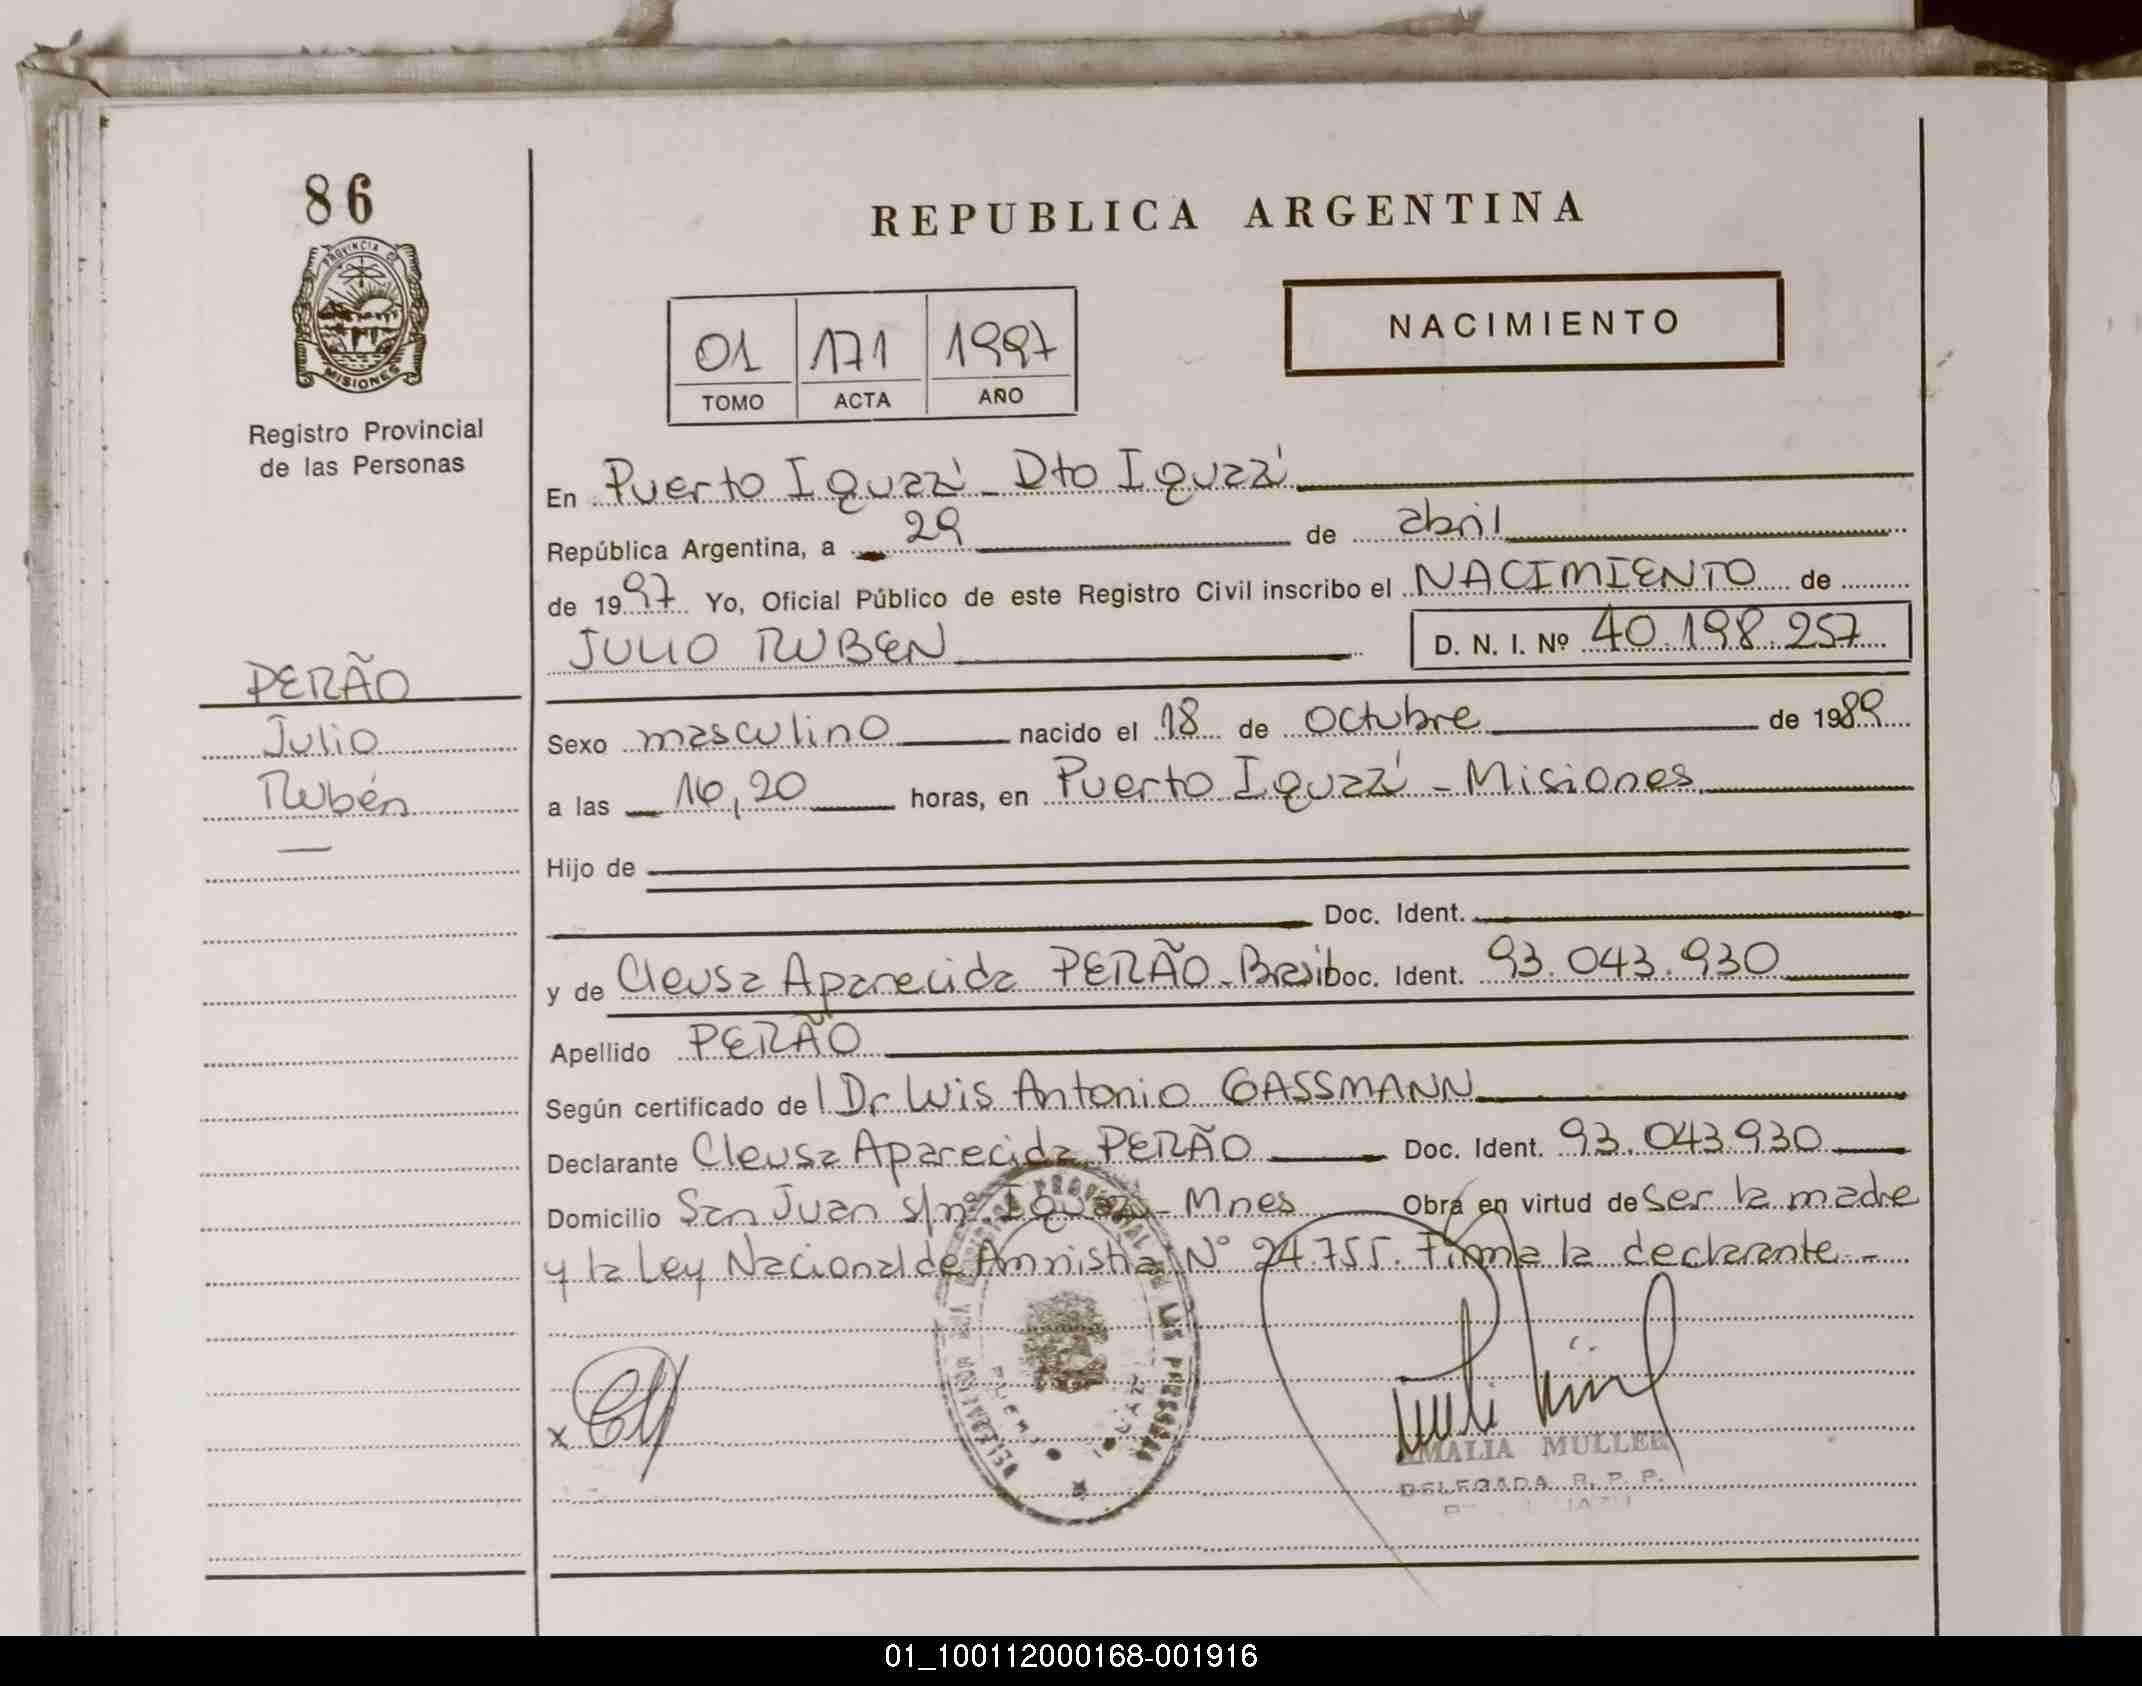 86
PROVINCIA DE
MISIONES
Registro Provincial
de las Personas
PERÃO
Julio
Rubén
REPUBLICA ARGENTINA
01 171 1997
TOMO ACTA AÑO
NACIMIENTO
En Puerto Iguazú - Dto Iguazú
República Argentina, a 29 de abril
de 1997 Yo, Oficial Público de este Registro Civil inscribo el NACIMIENTO de
JULIO RUBEN D. N. I. Nº 40.198.257
Sexo masculino nacido el 18 de octubre de 1989
a las 16,20 horas, en Puerto Iguazú - Misiones
Hijo de
Doc. Ident.
y de Cleusa Aparecida PERÃO - Brasi Doc. Ident. 93.043.930
Apellido PERÃO
Según certificado del Dr Luis Antonio GASSMANN
Declarante Cleusa Aparecida PERÃO Doc. Ident. 93.043.930
Domicilio San Juan s/nº Iguazú - Mnes Obra en virtud de ser la madre
y la Ley Nacional de Amnistia Nº 24.755. Firma la declarante.-
x
AMALIA MULLER
DELEGADA R. P. P.
01_100112000168-001916